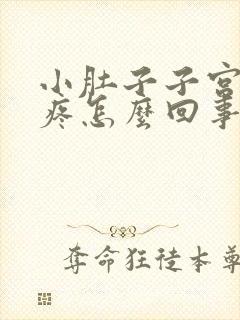 小肚子子宫
疼怎麽回事
夺命狂徒本尊